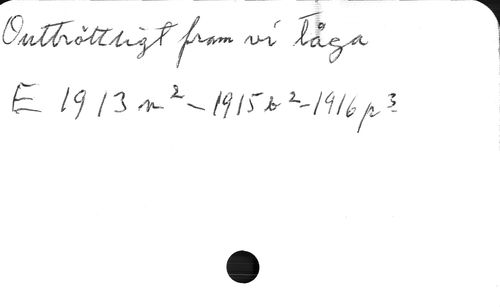 Outtröttligt fram vi tåga
E 1913 n² - 1915 b² - 1916 p³